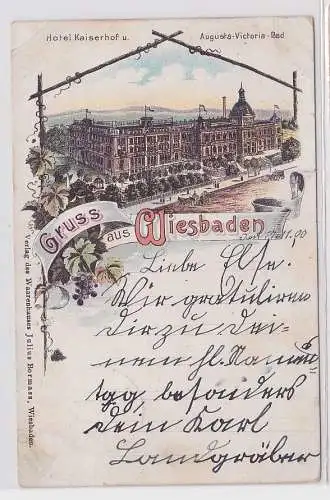 Hotel Kaiserhof u. Augusta-Victoria-Bad
Gruss aus Wiesbaden
11.00
Liebe Else.
Wir gratuliren
Dir zu Dei=
nem hl. Namen
tag, besonders
dein Karl
Landgräber
Verlag des Waarenhauses Julius Bormass, Wiesbaden.